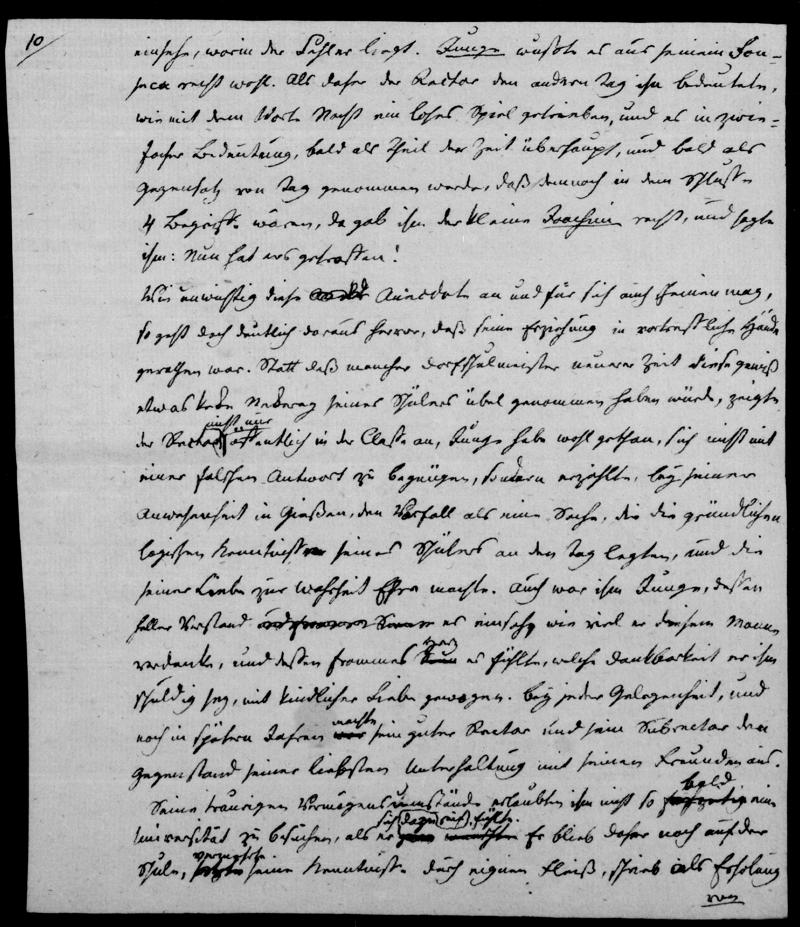 10
einsehe, worin der Fehler liegt. Junge wußte es aus seinem Fon-
seca recht wohl. Als daher der Rector den andern Tag ihm bedeutete,
wie mit dem Worte Nacht ein loses Spiel getrieben, und es in zwie-
facher Bedeutung, bald als Theil der Zeit überhaupt, und bald als
Gegensatz von Tag genommen werde, daß demnach in dem Schlusse
4 Begriffe wären, da gab ihm der kleine Joachim recht, und sagte
ihm: Nun hat ers getroffen!
Wie unwichtig diese Anecdote an und für sich auch scheinen mag,
so geht doch deutlich daraus hervor, daß seine Erziehung in vortreffliche Hände
gerathen war. Statt daß mancher Dorfschulmeister neuerer Zeit diese gewiß
etwas kecke Neckerey seines Schülers übel genommen haben würde, zeigte
der Rector nicht nur öffentlich in der Classe an, Junge habe wohl gethan, sich nicht mit
einer falschen Antwort zu begnügen, sondern erzählte, bey seiner
Anwesenheit in Gießen, den Vorfall als eine Sache, die die gründlichen
logischen Kenntnisse seines Schülers an den Tag legten, und die
seiner Liebe zur Wahrheit Ehre machte. Auch war ihm Junge, dessen
heller Verstand es einsah, wie viel er diesem Manne
verdanke, und dessen frommes Herz es fühlte, welche Dankbarkeit er ihm
schuldig sey, mit kindlicher Liebe gewogen. Bey jeder Gelegenheit, und
noch in spätern Jahren machte sein guter Rector und sein Subrector den
Gegenstand seiner liebsten Unterhaltung mit seinen Freunden aus.
Seine traurigen Vermögensumstände erlaubten ihm nicht so bald eine
Universität zu besuchen, als er sich dazu reif fühlte. Er blieb daher noch auf der
Schule, vermehrte seine Kenntnisse durch eignen Fleiß, schrieb als Erholung
von